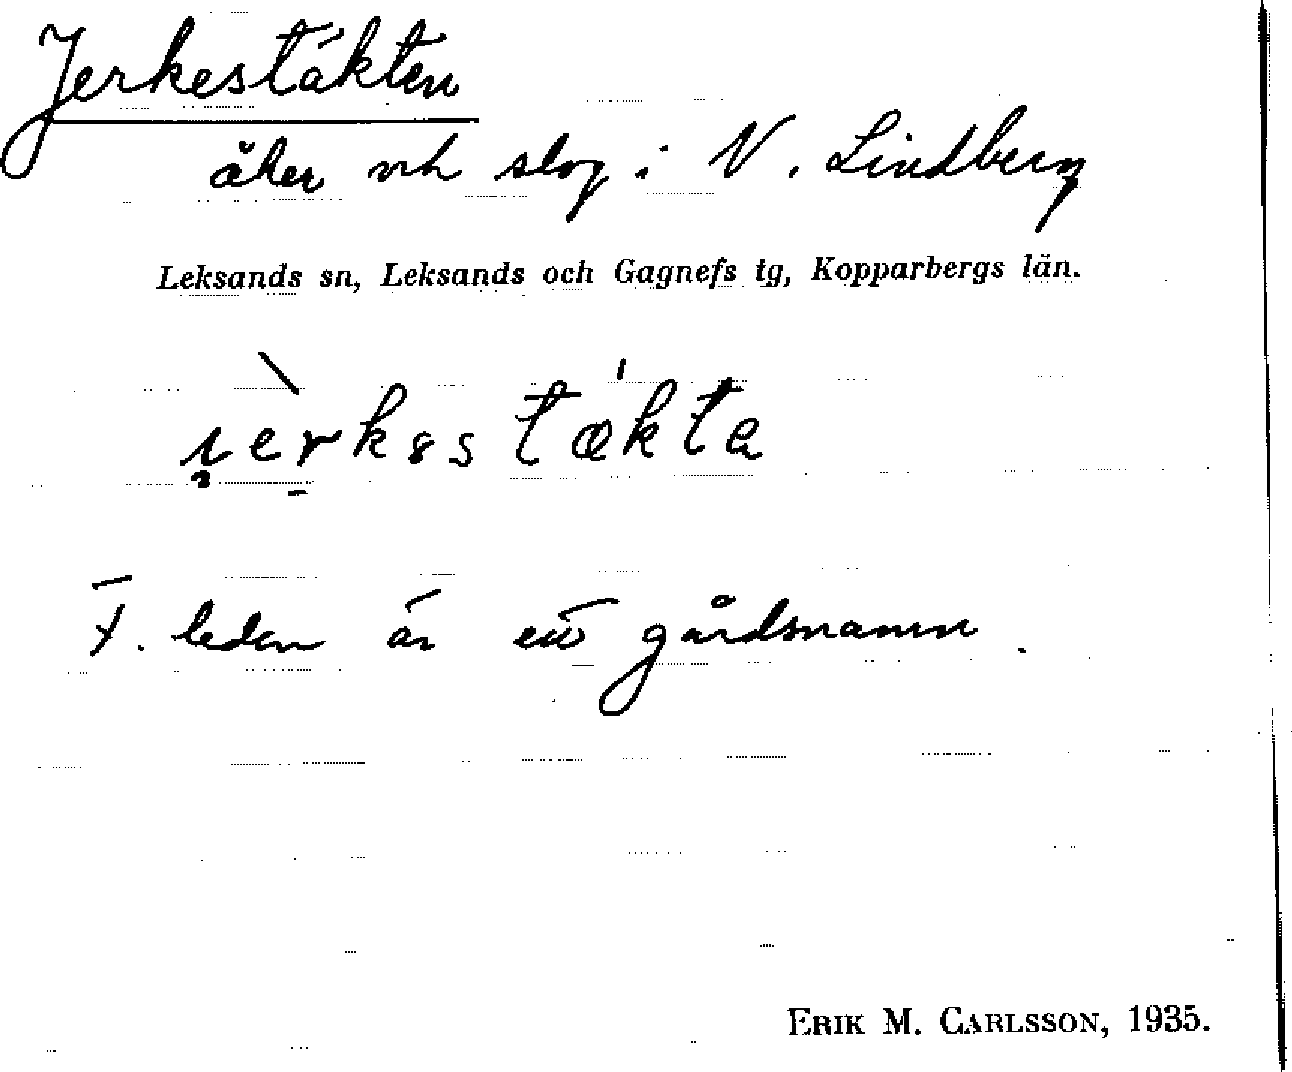 Jerkestäkten
åker och slog i N. Lindberg
Leksands sn, Leksands och Gagnefs tg, Kopparbergs län.
F. leden är ett gårdsnamn.
ERIK M. CARLSSON, 1935.